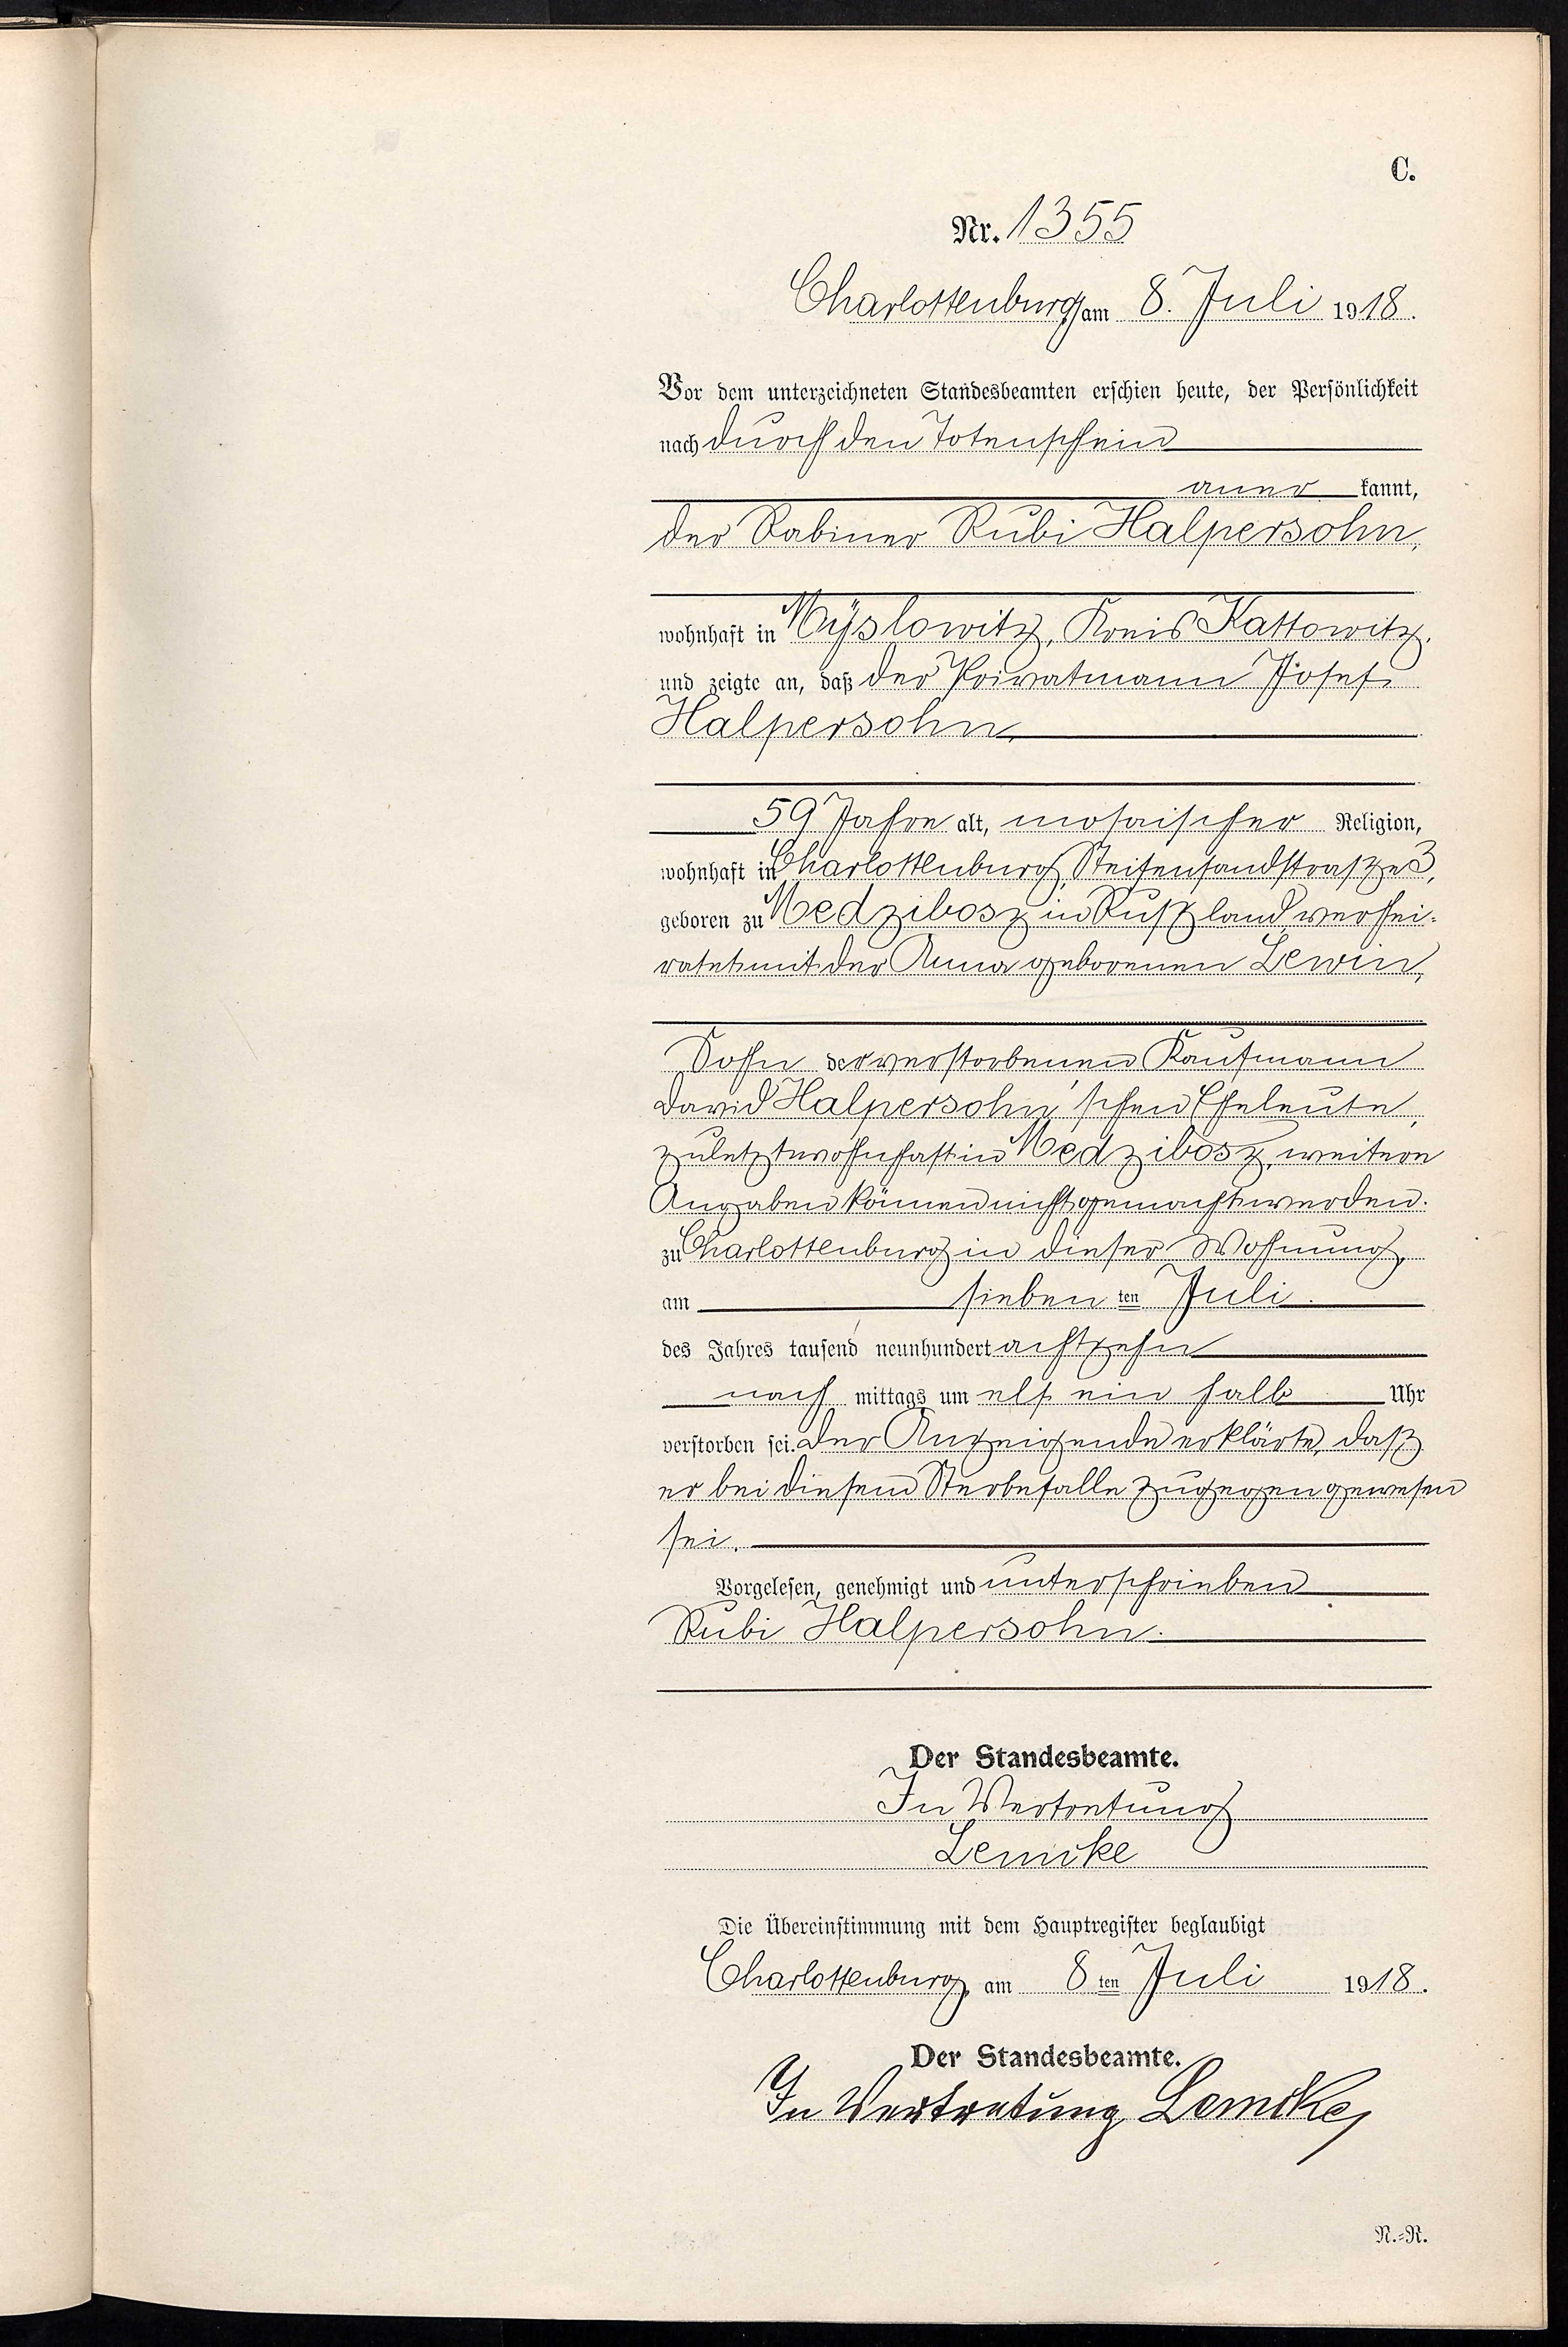 C.
Nr. 1355
Charlottenburg am 8. Juli 1918.
Vor dem unterzeichneten Standesbeamten erschien heute, der Persönlichkeit
nach durch den Totenschein
aner kannt,
der Rabiner Rubi Halpersohn,
wohnhaft in Myslowitz, Kreis Kattowitz,
und zeigte an, daß der Privatmann Josef
Halpersohn,
59 Jahre alt, mosaischer Religion,
wohnhaft in Charlottenburg, Steifensandstraße 3,
geboren zu Medzibosz in Rußland, verhei-
ratet mit der Anna geborenen Lewin,
Sohn der verstorbenen Kaufmann
David Halpersohn'schen Eheleute,
zuletzt wohnhaft in Medzibosz, weitere
Angaben können nicht gemacht werden.
zu Charlottenburg in dieser Wohnung,
am sieben ten Juli
des Jahres tausend neunhundert achtzehn
nach mittags um elf ein halb Uhr
verstorben sei. Der Anzeigende erklärte, daß
er bei diesem Sterbefalle zugegen gewesen
sei.
Vorgelesen, genehmigt und unterschrieben
Rubi Halpersohn.
Der Standesbeamte.
In Vertretung
Lemcke
Die Übereinstimmung mit dem Hauptregister beglaubigt
Charlottenburg, am 8 ten Juli 1918.
Der Standesbeamte.
In Vertretung Lemcke
N.=R.